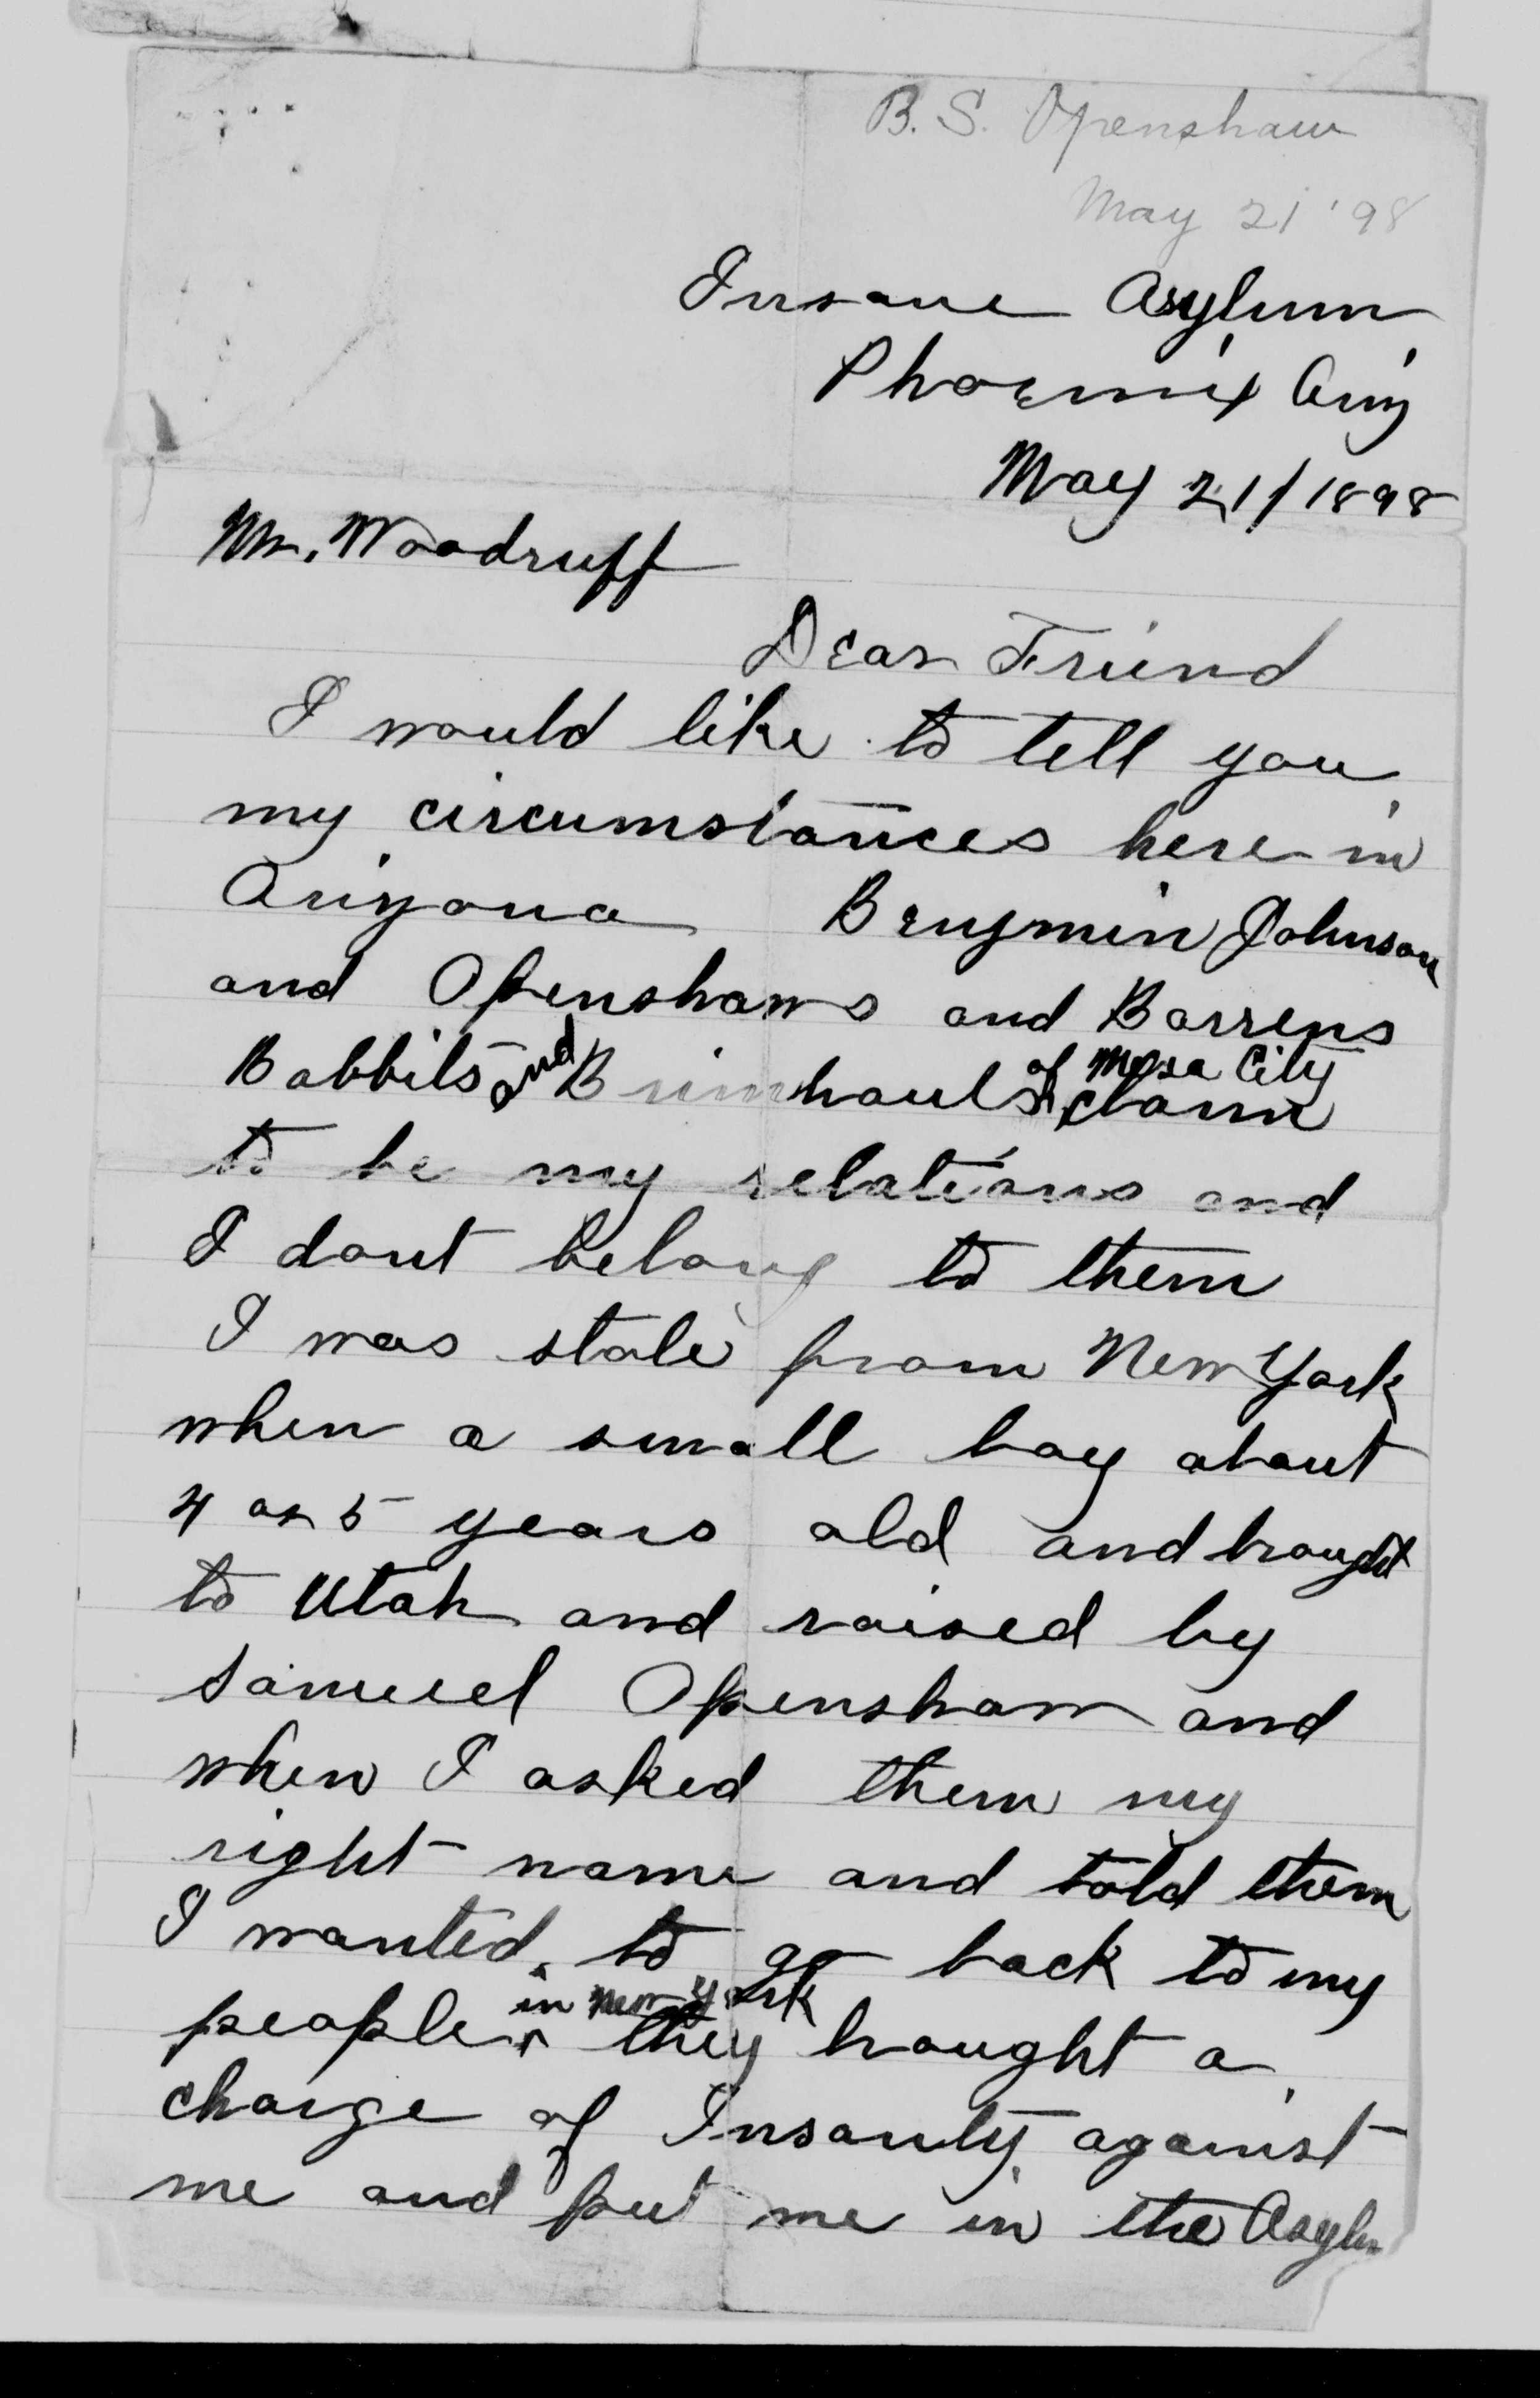 B. S. Openshaw
May 21 '98
Insane Asylum
Phoenix Ariz
May 21/1898
Mr. Woodruff
Dear Friend
I would like to tell you
my circumstances here in
Arizona Benjmin Johnson
and Openshaws and Barrens
of Mesa City
Babbits and Brimhauls claim
to be my relations and
I dont belong to them
I was stole from New York
when a small boy about
4 or 5 years old and brought
to Utah and raised by
Samuel Openshaw and
when I asked them my
right name and told them
I wanted to go back to my
in New York
people they brought a
charge of Insanity against
me and put me in the Asylm